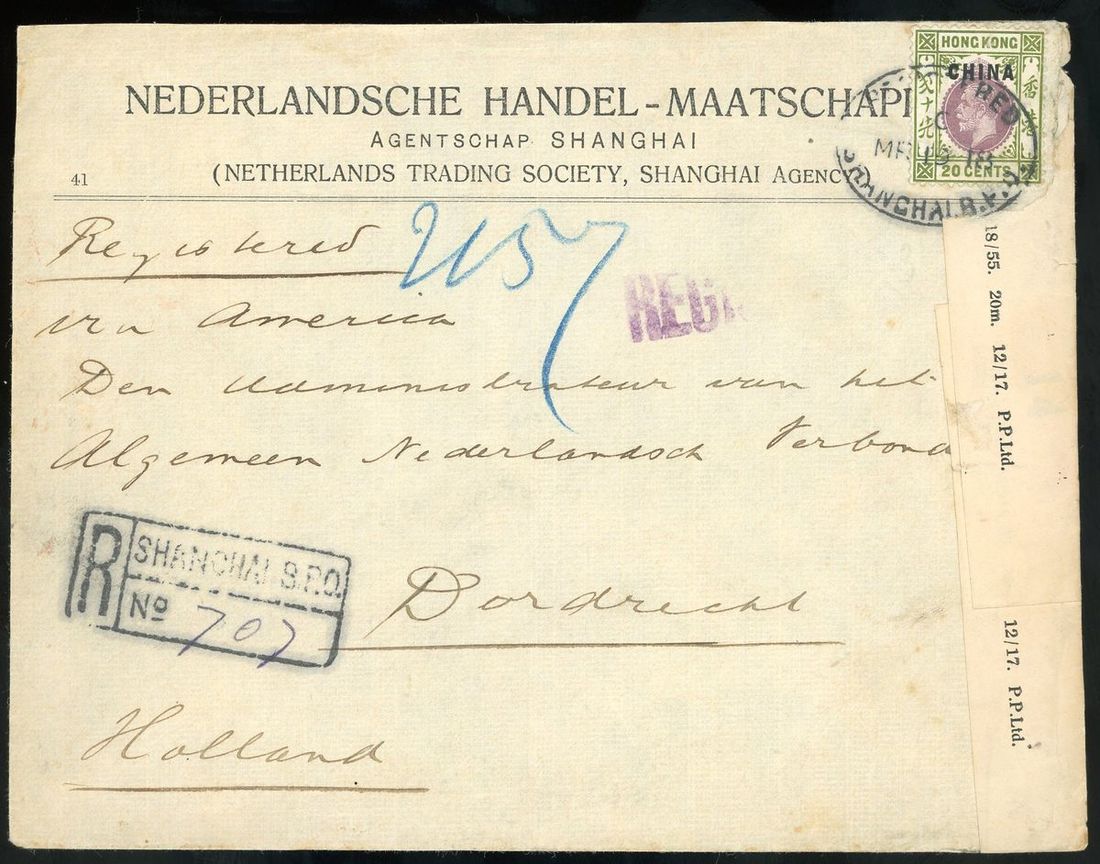 HONG KONG
CHINA
貳十先
香港
20 CENTS
MR 13 18
SHANGHAI B.P.O.
NEDERLANDSCHE HANDEL-MAATSCHAPI
AGENTSCHAP SHANGHAI
41 (NETHERLANDS TRADING SOCIETY, SHANGHAI AGENCY)
Registered
2157
REGI
via America
Den Administrateur van het
Algemeen Nederlandsch Verbond
R SHANGHAI B.P.O.
No 707
Dordrecht
Holland
18/55. 20m. 12/17. P.P.Ltd.
12/17. P.P.Ltd.